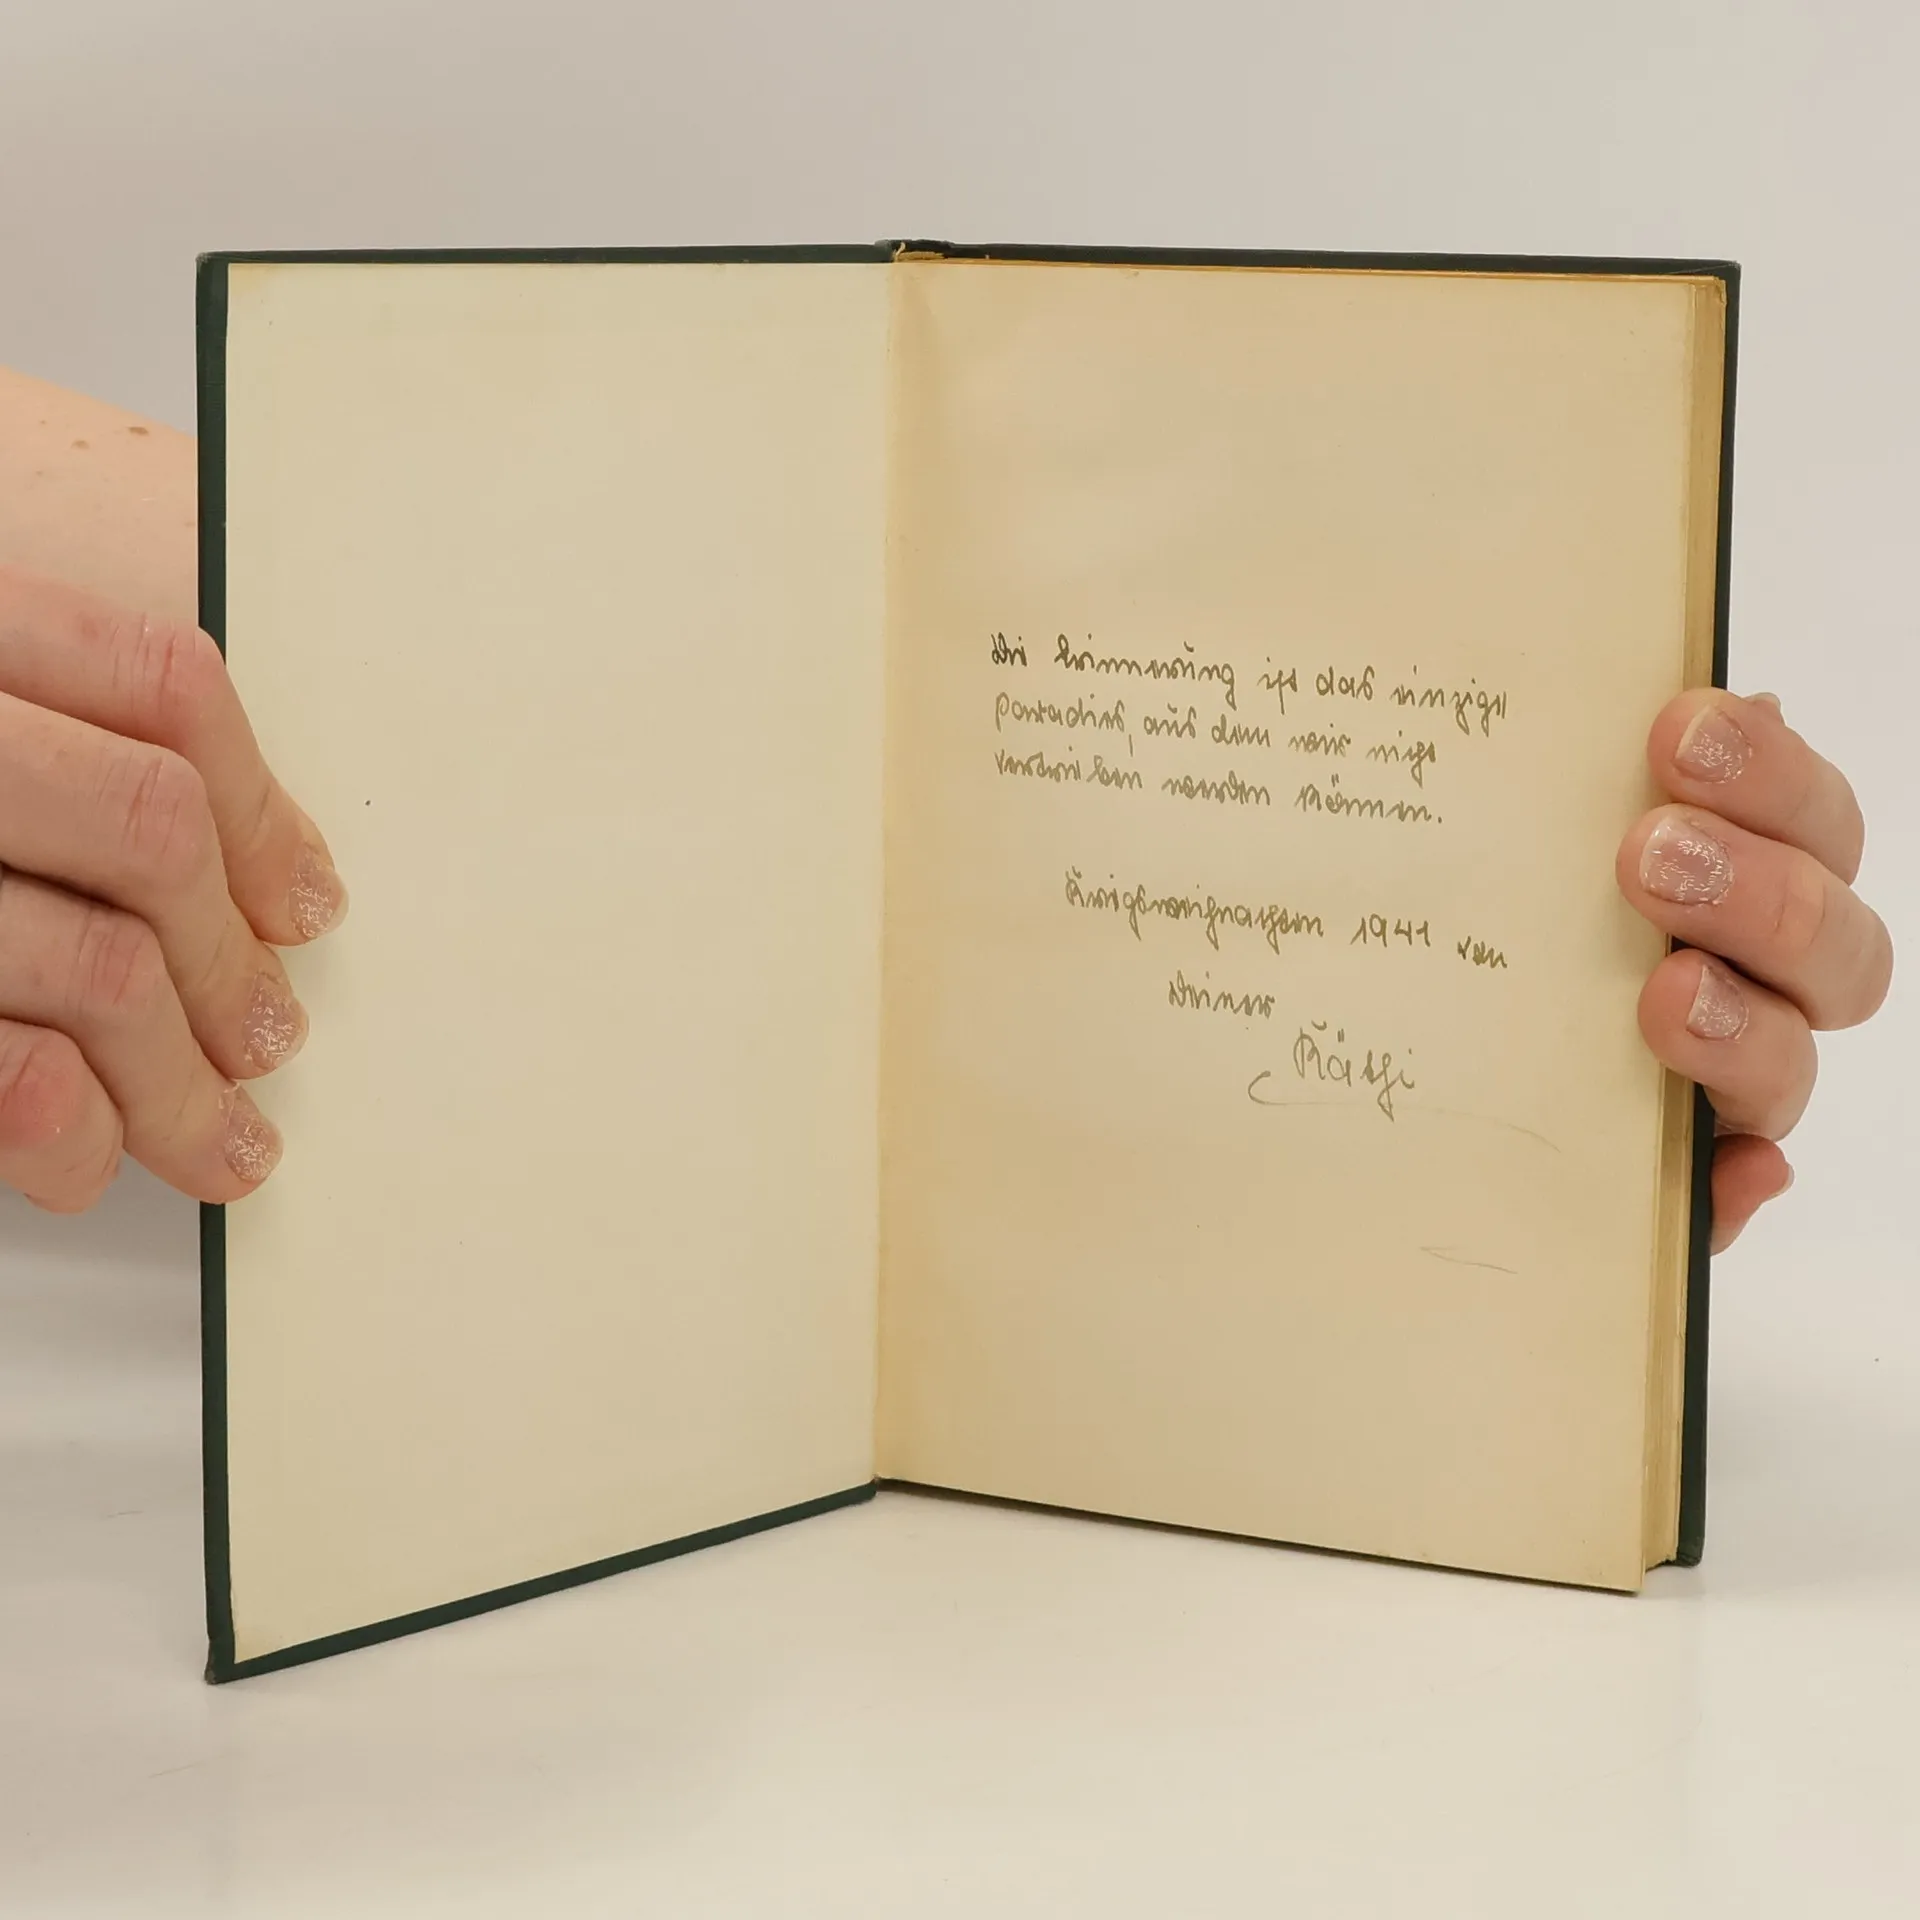 Die Erinnerung ist das einzige
Paradies, aus dem wir nicht
vertrieben werden können.
Kriegsweihnachten 1941 von
Deiner
Käthi